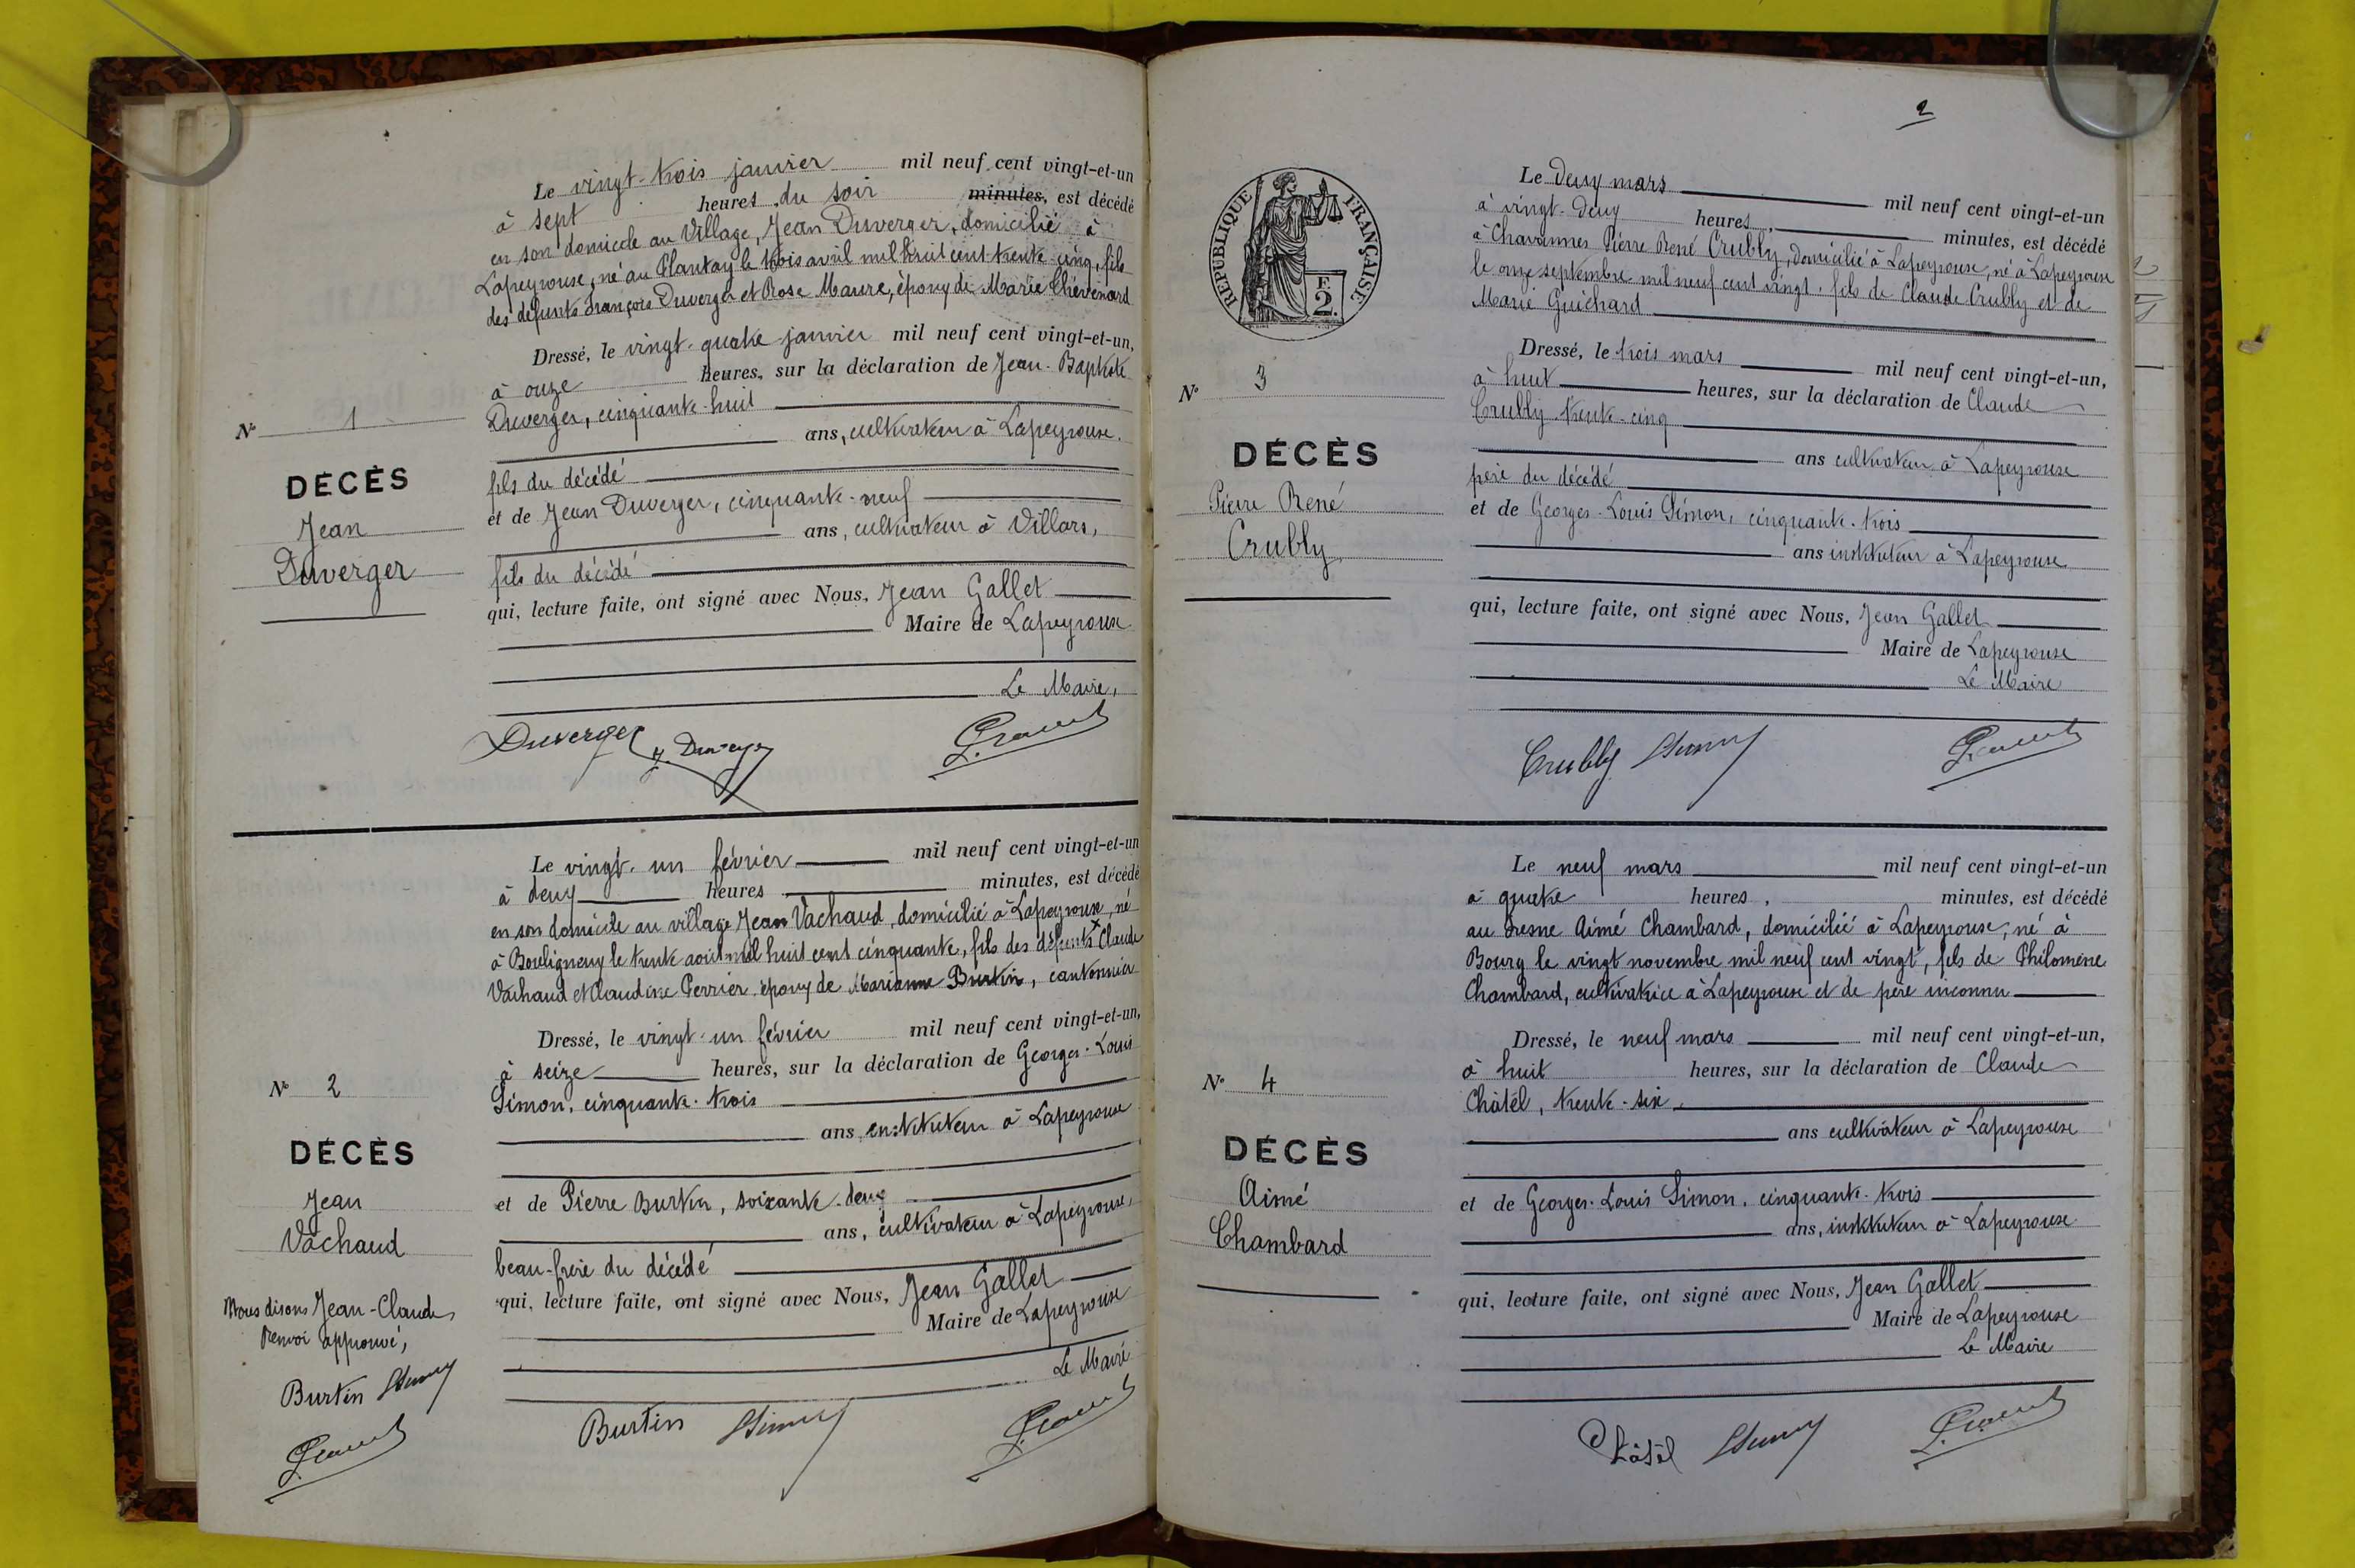 Le vingt-trois janvier mil neuf cent vingt-et-un
à sept heures du soir minutes, est décédé
en son domicile au Village, Jean Duverger, domicilié à
Lapeyrouse, né au Plantay le trois avril mil huit cent trente-cinq, fils
des défunts François Duverger et Rose Maure, époux de Marie Chévenard
Dressé, le vingt-quatre janvier mil neuf cent vingt-et-un,
à onze heures, sur la déclaration de Jean-Baptiste
Duverger, cinquante-huit
ans, cultivateur à Lapeyrouse.
fils du décédé
et de Jean Duverger, cinquante-neuf
ans, cultivateur à Villars,
fils du décédé
qui, lecture faite, ont signé avec Nous, Jean Gallet
Maire de Lapeyrouse
Le Maire,
Duverger J. Duverger
N° 1
DÉCÈS
Jean
Duverger
Le vingt-un février mil neuf cent vingt-et-un
à deux heures minutes, est décédé
en son domicile au village Jean Vachaud, domicilié à Lapeyrouse, né
à Bouligneux le trente août mil huit cent cinquante, fils des défunts x Claude
Vachaud et Claudine Perrier, époux de Marianne Burtin, cantonnier
Dressé, le vingt-un février mil neuf cent vingt-et-un,
à seize heures, sur la déclaration de Georges-Louis
Simon, cinquante-trois
ans, instituteur à Lapeyrouse
et de Pierre Burtin, soixante-deux
ans, cultivateur à Lapeyrouse,
beau-frère du décédé
qui, lecture faite, ont signé avec Nous, Jean Gallet
Maire de Lapeyrouse
Le Maire
Burtin Simon
N° 2
DÉCÈS
Jean
Vachaud
Nous disons Jean-Claude
Renvoi approuvé,
Burtin Simon
2
RÉPUBLIQUE FRANÇAISE
E
2.
Le deux mars mil neuf cent vingt-et-un
à vingt-deux heures, minutes, est décédé
à Chavannes Pierre René Crubly, domicilié à Lapeyrouse, né à Lapeyrouse
le onze septembre mil neuf cent vingt, fils de Claude Crubly et de
Marie Guichard
Dressé, le trois mars mil neuf cent vingt-et-un,
à huit heures, sur la déclaration de Claude
Crubly trente-cinq
ans cultivateur à Lapeyrouse
père du décédé
et de Georges-Louis Simon, cinquante-trois
ans instituteur à Lapeyrouse
qui, lecture faite, ont signé avec Nous, Jean Gallet
Maire de Lapeyrouse
Le Maire
Crubly Simon
N° 3
DÉCÈS
Pierre René
Crubly
Le neuf mars mil neuf cent vingt-et-un
à quatre heures, minutes, est décédé
au Fresne Aimé Chambard, domicilié à Lapeyrouse, né à
Bourg le vingt novembre mil neuf cent vingt, fils de Philomène
Chambard, cultivatrice à Lapeyrouse et de père inconnu
Dressé, le neuf mars mil neuf cent vingt-et-un,
à huit heures, sur la déclaration de Claude
Châtel, trente-six
ans cultivateur à Lapeyrouse
et de Georges-Louis Simon, cinquante-trois
ans, instituteur à Lapeyrouse
qui, lecture faite, ont signé avec Nous, Jean Gallet
Maire de Lapeyrouse
Le Maire
Châtel Simon
N° 4
DÉCÈS
Aimé
Chambard